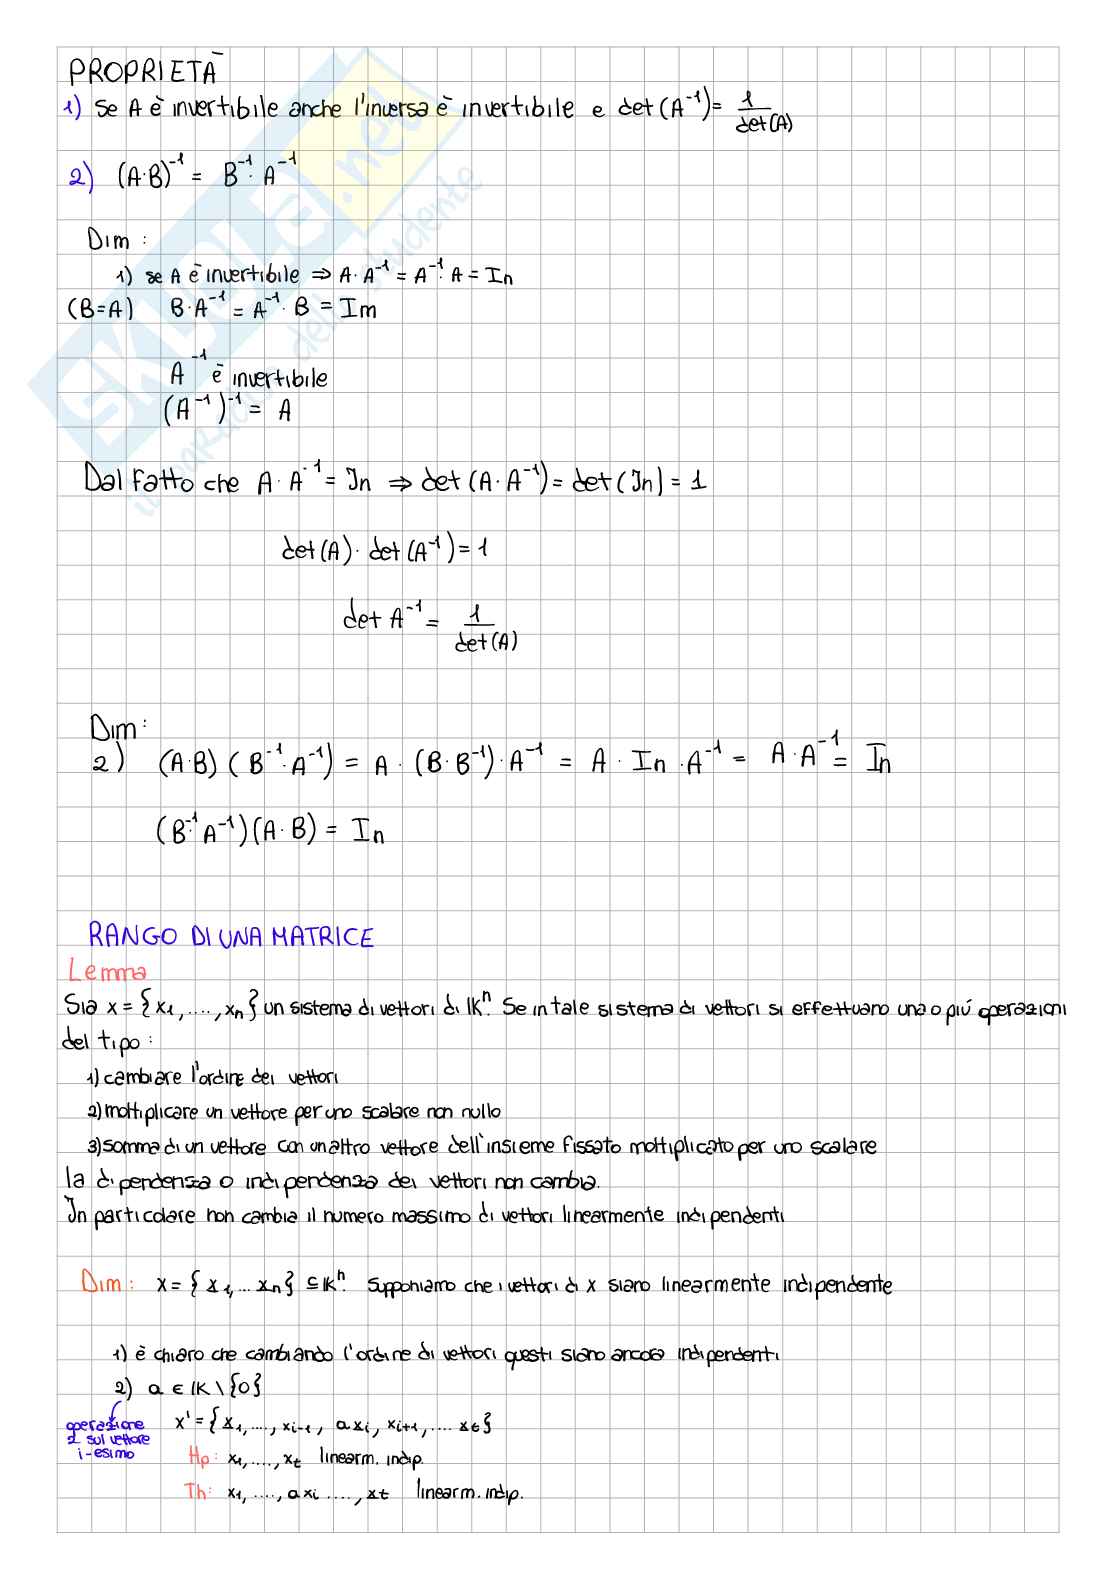 PROPRIETÀ
1) Se A è invertibile anche l'inversa è invertibile e det(A⁻¹)= 1/det(A)
2) (A·B)⁻¹ = B⁻¹·A⁻¹
Dim :
1) se A è invertibile ⇒ A·A⁻¹ = A⁻¹·A = In
(B=A) B·A⁻¹ = A⁻¹·B = Im
A⁻¹ è invertibile
(A⁻¹)⁻¹ = A
Dal fatto che A·A⁻¹ = In ⇒ det(A·A⁻¹) = det(In) = 1
det(A)·det(A⁻¹) = 1
det A⁻¹ = 1/det(A)
Dim:
2) (A·B)(B⁻¹·A⁻¹) = A·(B·B⁻¹)·A⁻¹ = A·In·A⁻¹ = A·A⁻¹ = In
(B⁻¹·A⁻¹)(A·B) = In
RANGO DI UNA MATRICE
Lemma
Sia x = {x₁, ...., xₙ} un sistema di vettori di IKⁿ. Se in tale sistema di vettori si effettuano una o più operazioni
del tipo :
1) cambiare l'ordine dei vettori
2) moltiplicare un vettore per uno scalare non nullo
3) somma di un vettore con un altro vettore dell'insieme fissato moltiplicato per uno scalare
la dipendenza o indipendenza dei vettori non cambia.
In particolare non cambia il numero massimo di vettori linearmente indipendenti
Dim: x = {x₁, ... xₙ} ⊆ IKⁿ. Supponiamo che i vettori di x siano linearmente indipendente
1) è chiaro che cambiando l'ordine di vettori questi siano ancora indipendenti
2) a ∈ IK \ {0}
operazione
2 sul vettore
i-esimo
x' = {x₁, ...., xᵢ₋₁, axᵢ, xᵢ₊₁, .... xt}
Hp: x₁, ...., xt linearm. indip.
Th: x₁, ...., axᵢ ...., xt linearm. indip.
SKUOLA.net
il paradiso dello studente